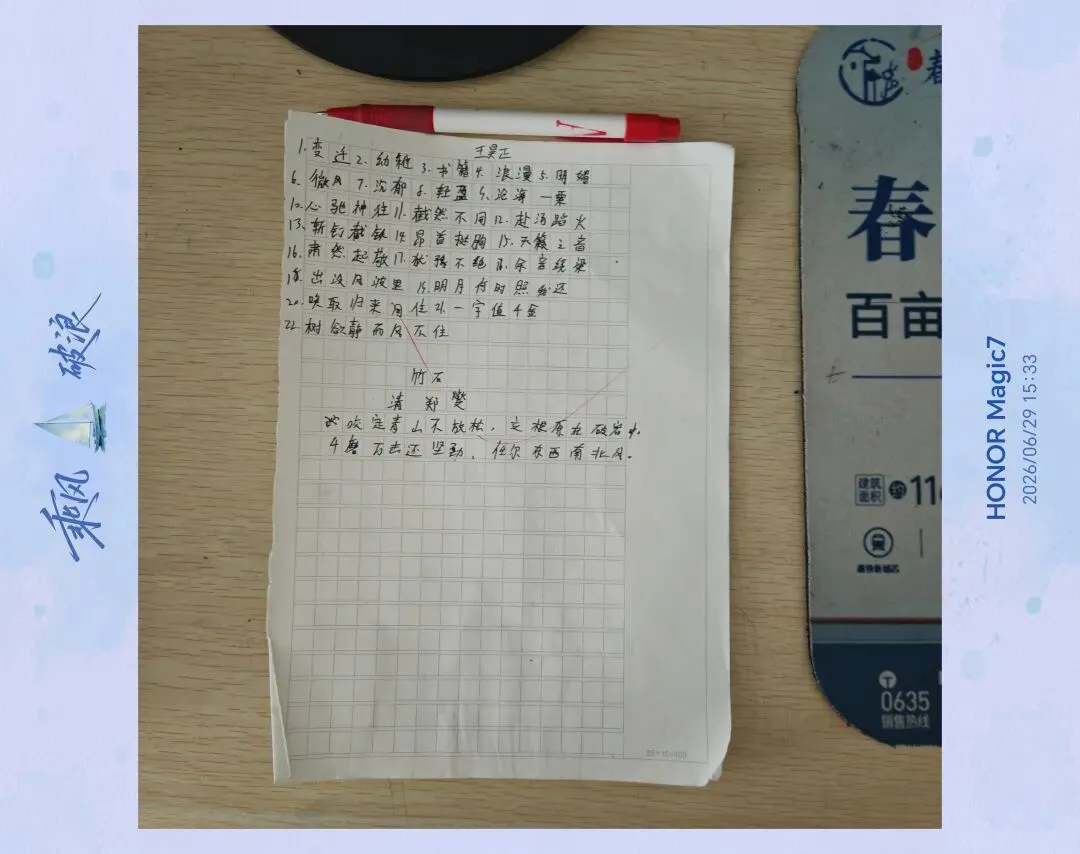 王昊正
1.变迁 2.幼稚 3.书籍 4.浪漫 5.明媚
6.微风 7.沉郁 8.轻盈 9.沧海一粟
10.心驰神往 11.截然不同 12.赴汤蹈火
13.斩钉截铁 14.昂首挺胸 15.天籁之音
16.肃然起敬 17.犹豫不绝 18.余音绕梁
18.出没风波里 19.明月何时照我还
20.唤取归来同住 21.一字值千金
22.树欲静而风不住
竹石
清 郑燮
咬定青山不放松，立根原在破岩中。
千磨万击还坚劲，任尔东西南北风。
25×16=400
春
百亩
建筑面积 约 116
0635
销售热线
乘风 破浪
HONOR Magic7
2026/06/29 15:33